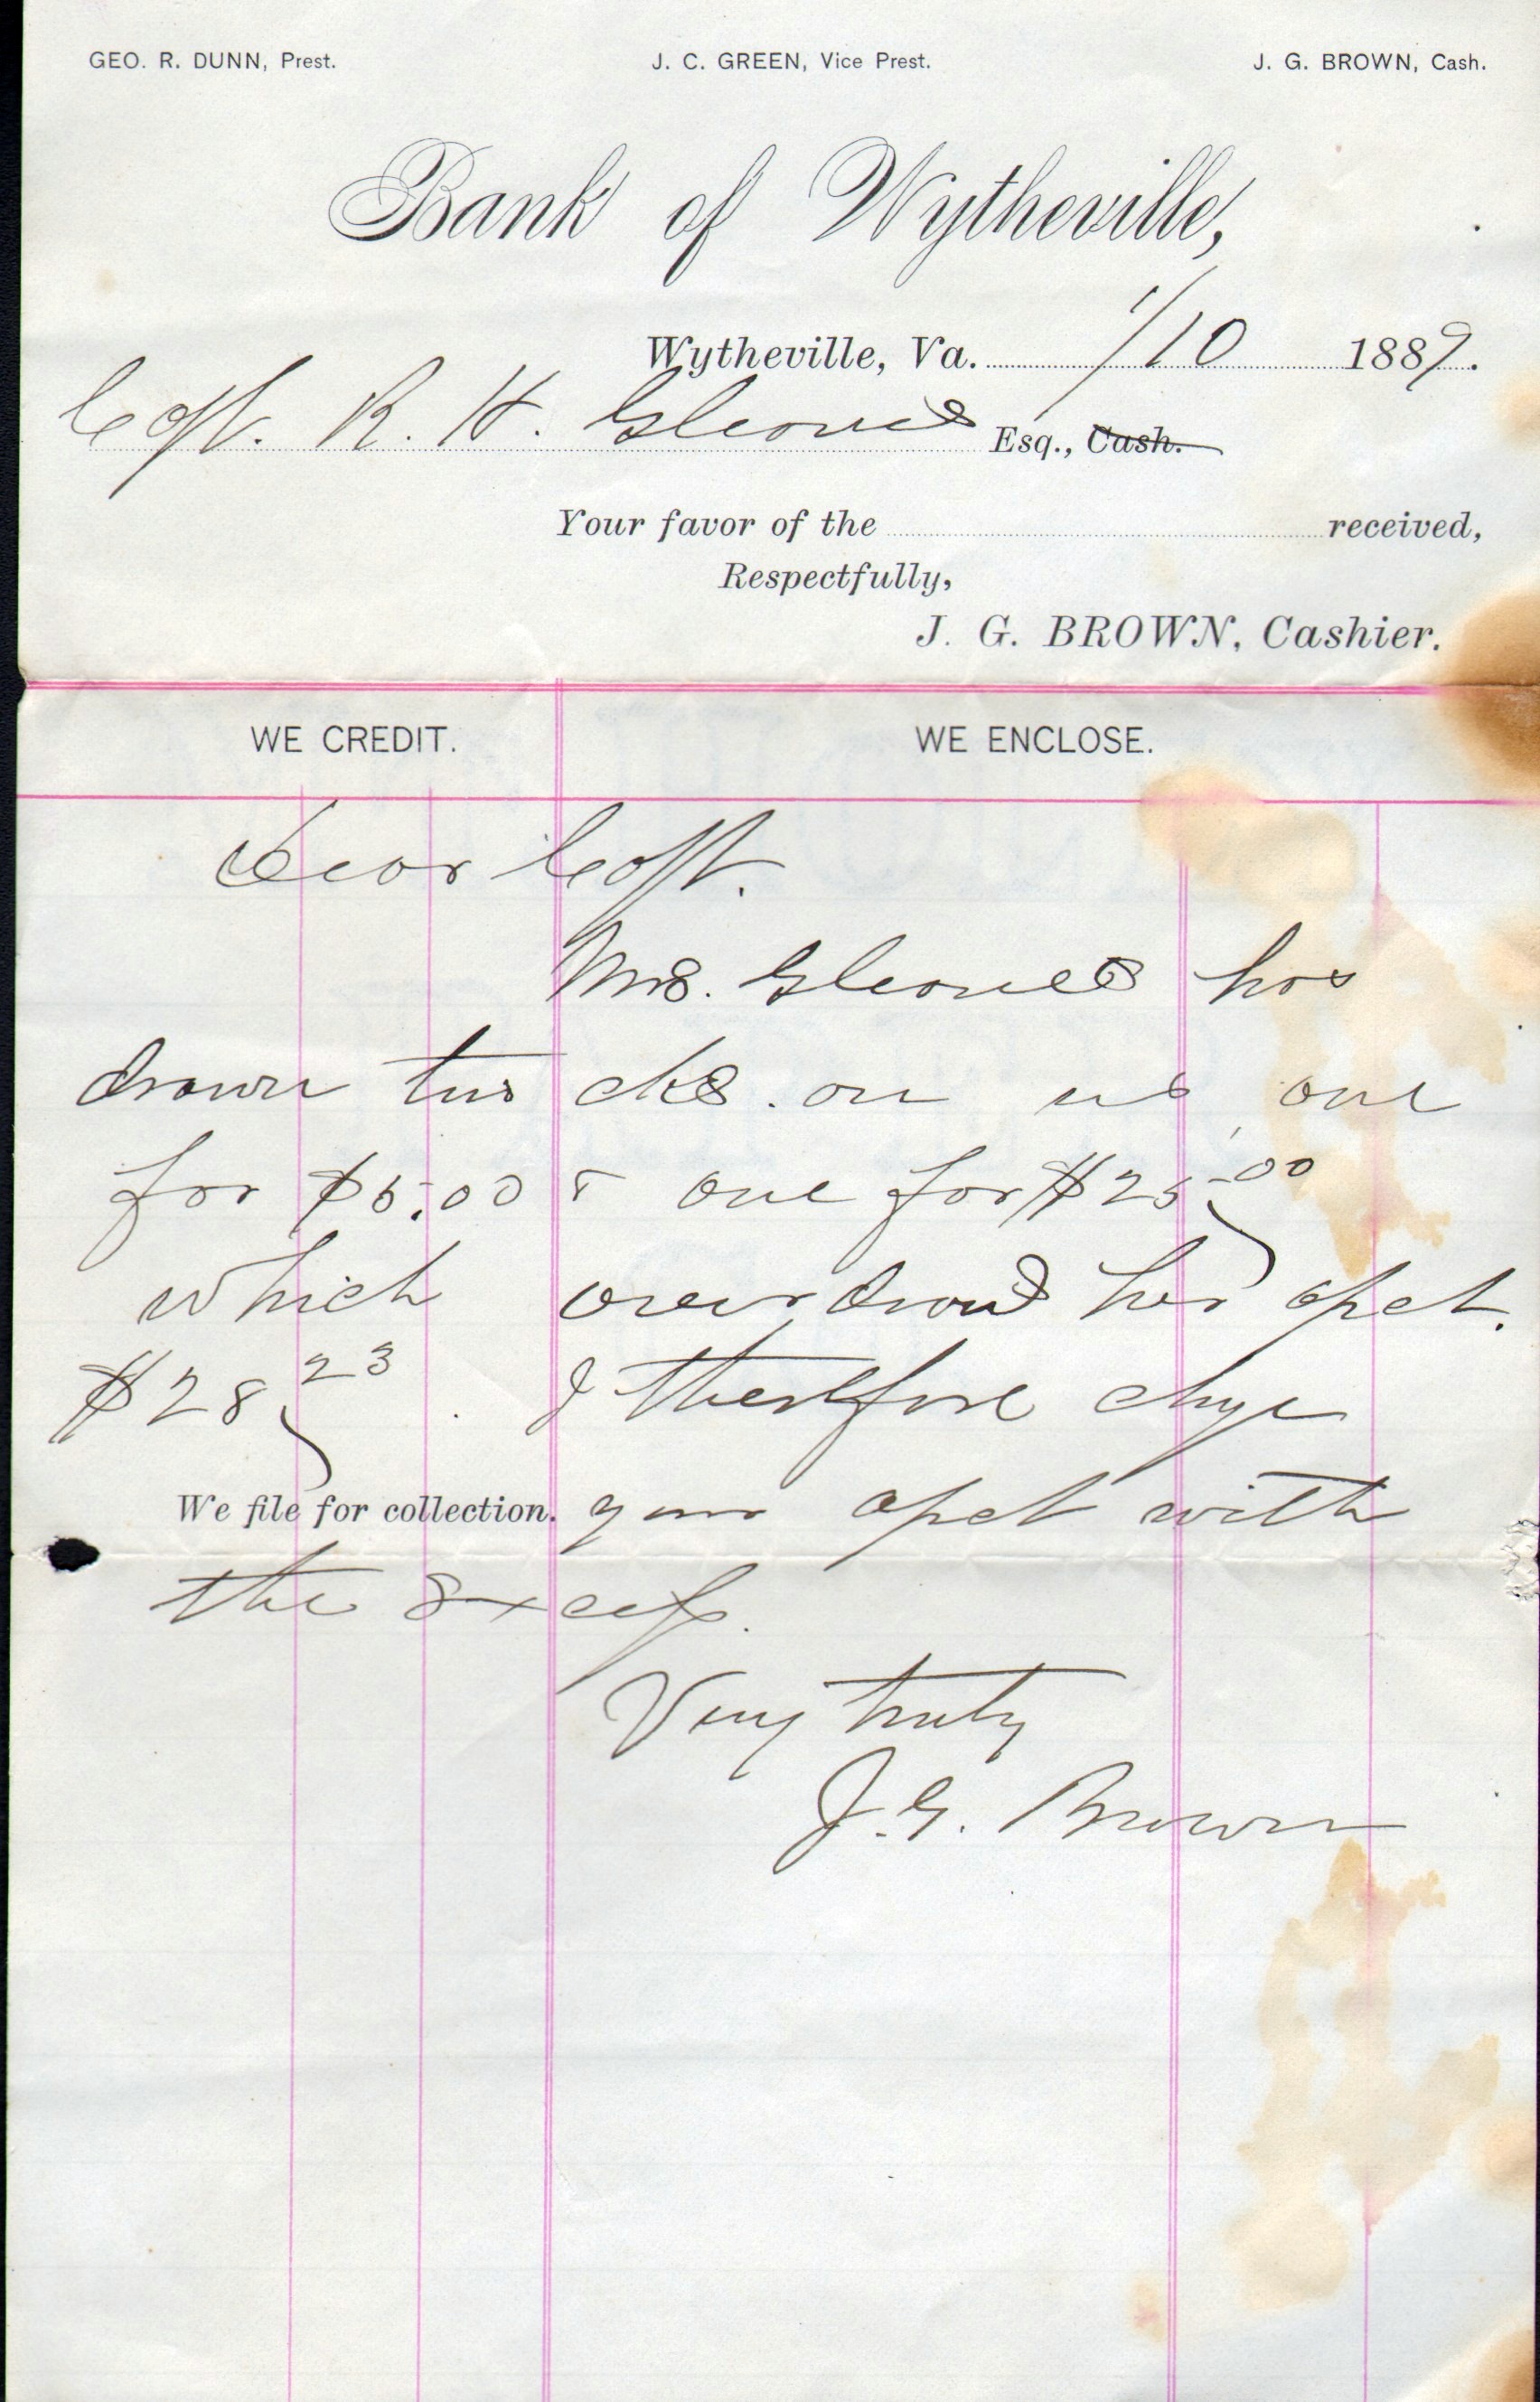 GEO. R. DUNN, Prest. J. C. GREEN, Vice Prest. J. G. BROWN, Cash.
Bank of Wytheville,
Wytheville, Va. 1/10 1889.
Capt. R. H. Gleaves Esq., Cash.
Your favor of the received,
Respectfully,
J. G. BROWN, Cashier.
WE CREDIT. WE ENCLOSE.
Dear Capt.
Mrs. Gleaves has
drawn two cks. on us, one
for $5.00 & one for $25.00
which over draws her apct.
$28.23 I therefore chge
We file for collection. your apct with
the excess.
Very truly
J. G. Brown